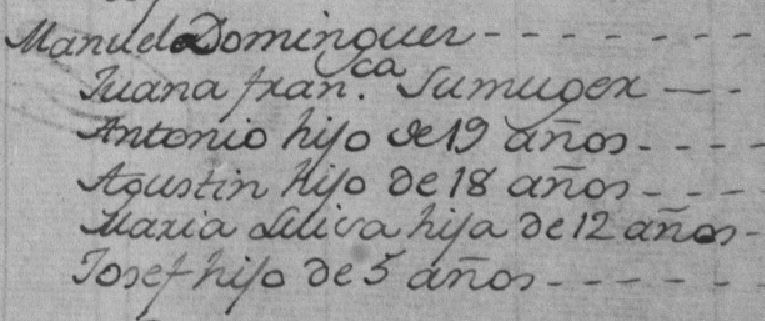 Manuel Dominguez - - - - - - -
Juana fran.ca Su muger - -
Antonio hijo de 19 años - - - -
Agustin hijo de 18 años - - - -
Maria Luisa hija de 12 años -
Josef hijo de 5 años - - - - - -